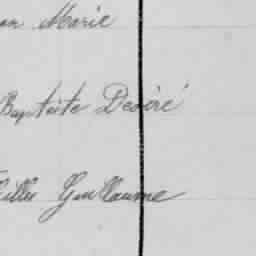 Marie
Baptiste Désiré
Guillaume